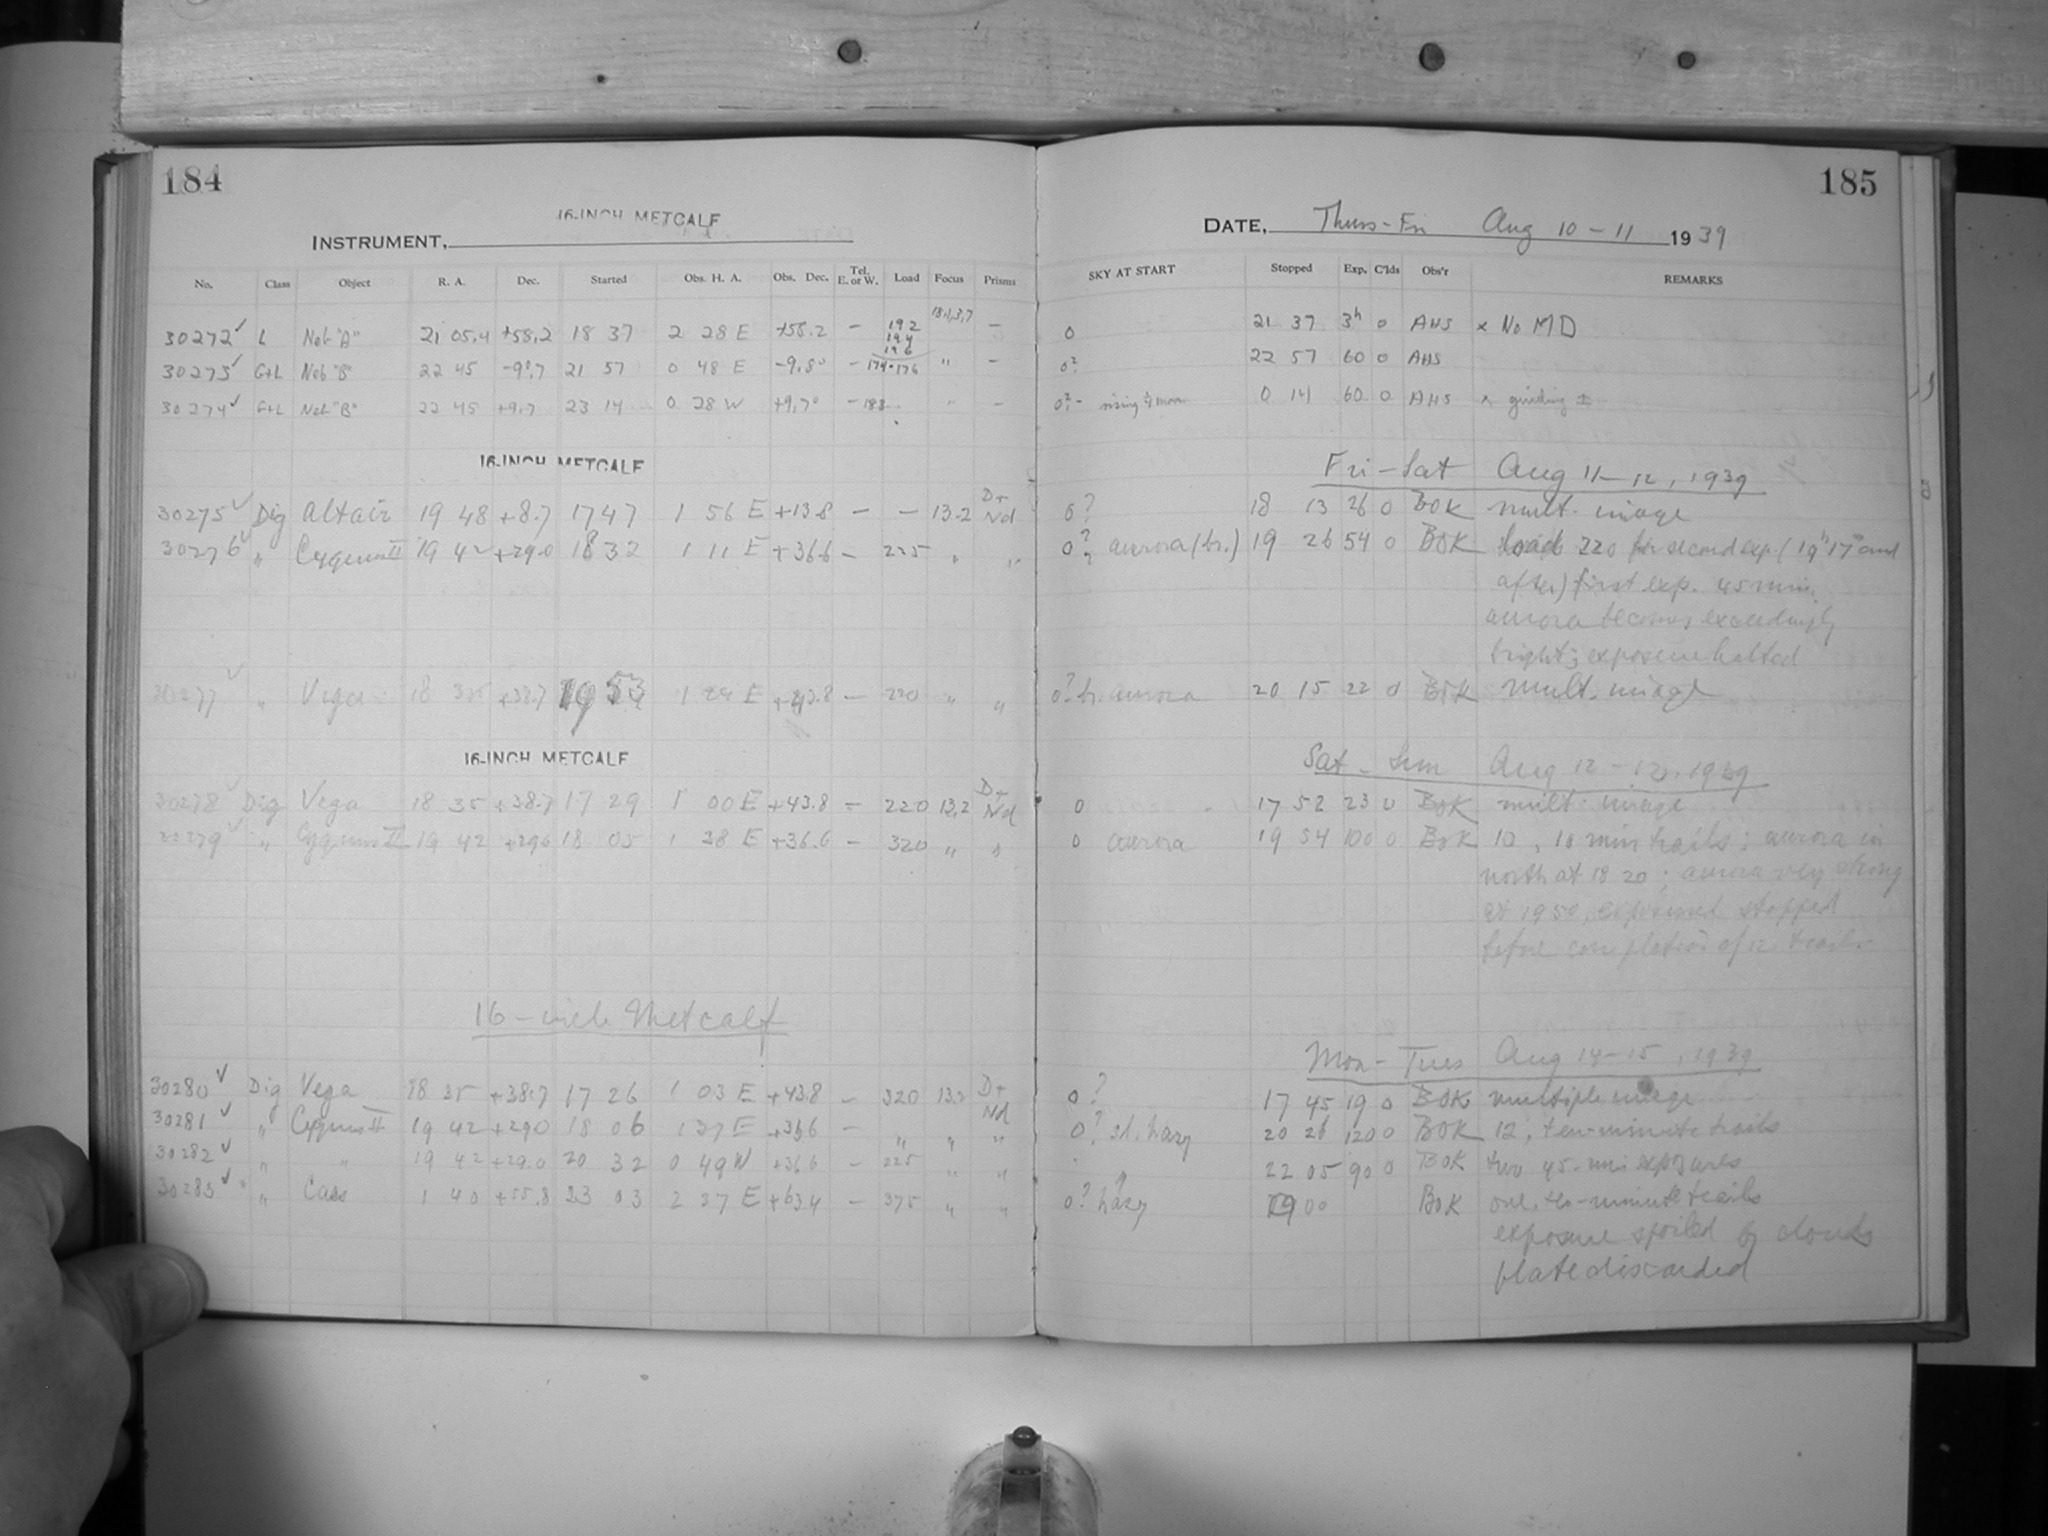 184
16-INCH METCALF
INSTRUMENT,
No. Class Object R. A. Dec. Started Obs. H. A. Obs. Dec. Tel. E. or W. Load Focus Prisms
30272 ✓ L Neb "A" 21 05.4 +58.2 18 37 2 28 E +58.2 — 192 194 196 —
30273 ✓ G+L Neb "B" 22 45 21 57 0 48 E — 174-176 " —
30274 ✓ G+L Neb "B" 22 45 +9.7 23 14 0 28 W — 183 " —
16-INCH METCALF
30275 ✓ Dig Altair 19 48 +8.7 17 47 1 56 E +13.8 — — 13.2 D+ Nd
30276 ✓ " Cygnus II 19 42 +29.0 18 32 1 11 E +36.6 — 225 " "
30277 ✓ " Vega 18 35 +38.7 19 53 1 24 E +43.8 — 220 " "
16-INCH METCALF
30278 ✓ Dig Vega 18 35 +38.7 17 29 1 00 E +43.8 — 220 13.2 D+ Nd
30279 ✓ " Cygnus II 19 42 +29.0 18 05 1 38 E +36.6 — 320 " "
16-inch Metcalf
30280 ✓ Dig Vega 18 35 +38.7 17 26 1 03 E +43.8 — 320 13.2 D+ Nd
30281 ✓ " Cygnus II 19 42 +29.0 18 06 1 37 E +36.6 — " " "
30282 ✓ " " 19 42 +29.0 20 32 0 49 W +36.6 — 225 " "
30283 ✓ " Cass 1 40 +55.8 23 03 2 37 E +63.4 — 375 " "
185
DATE, Thurs-Fri Aug 10-11 1939
SKY AT START Stopped Exp. C'lds Obs'r REMARKS
0 21 37 3h 0 AHS x No MD
0? 22 57 60 0 AHS
0?- rising moon 0 14 60 0 AHS x guiding ±
Fri-Sat Aug 11-12, 1939
0? 18 13 26 0 BOK mult. image
0? aurora (br.) 19 26 54 0 BOK load 220 for second exp. (19h 17m and
after) first exp. 45 min.
aurora becomes exceedingly
bright; exposure halted
0? br. aurora 20 15 22 0 BOK mult. image
Sat-Sun Aug 12-13, 1939
0 17 52 23 0 BOK mult. image
0 aurora 19 54 100 0 BOK 10, 10 min trails; aurora in
north at 18 20; aurora very strong
at 19 50, exposures stopped
before completion of 12 trails.
Mon-Tues Aug 14-15, 1939
0? 17 45 19 0 BOK multiple image
0? sl. hazy 20 26 120 0 BOK 12, ten-minute trails
" " 22 05 90 0 BOK two 45-min exposures
0? hazy 00 BOK one, ten-minute trails
exposure spoiled by clouds
plate discarded